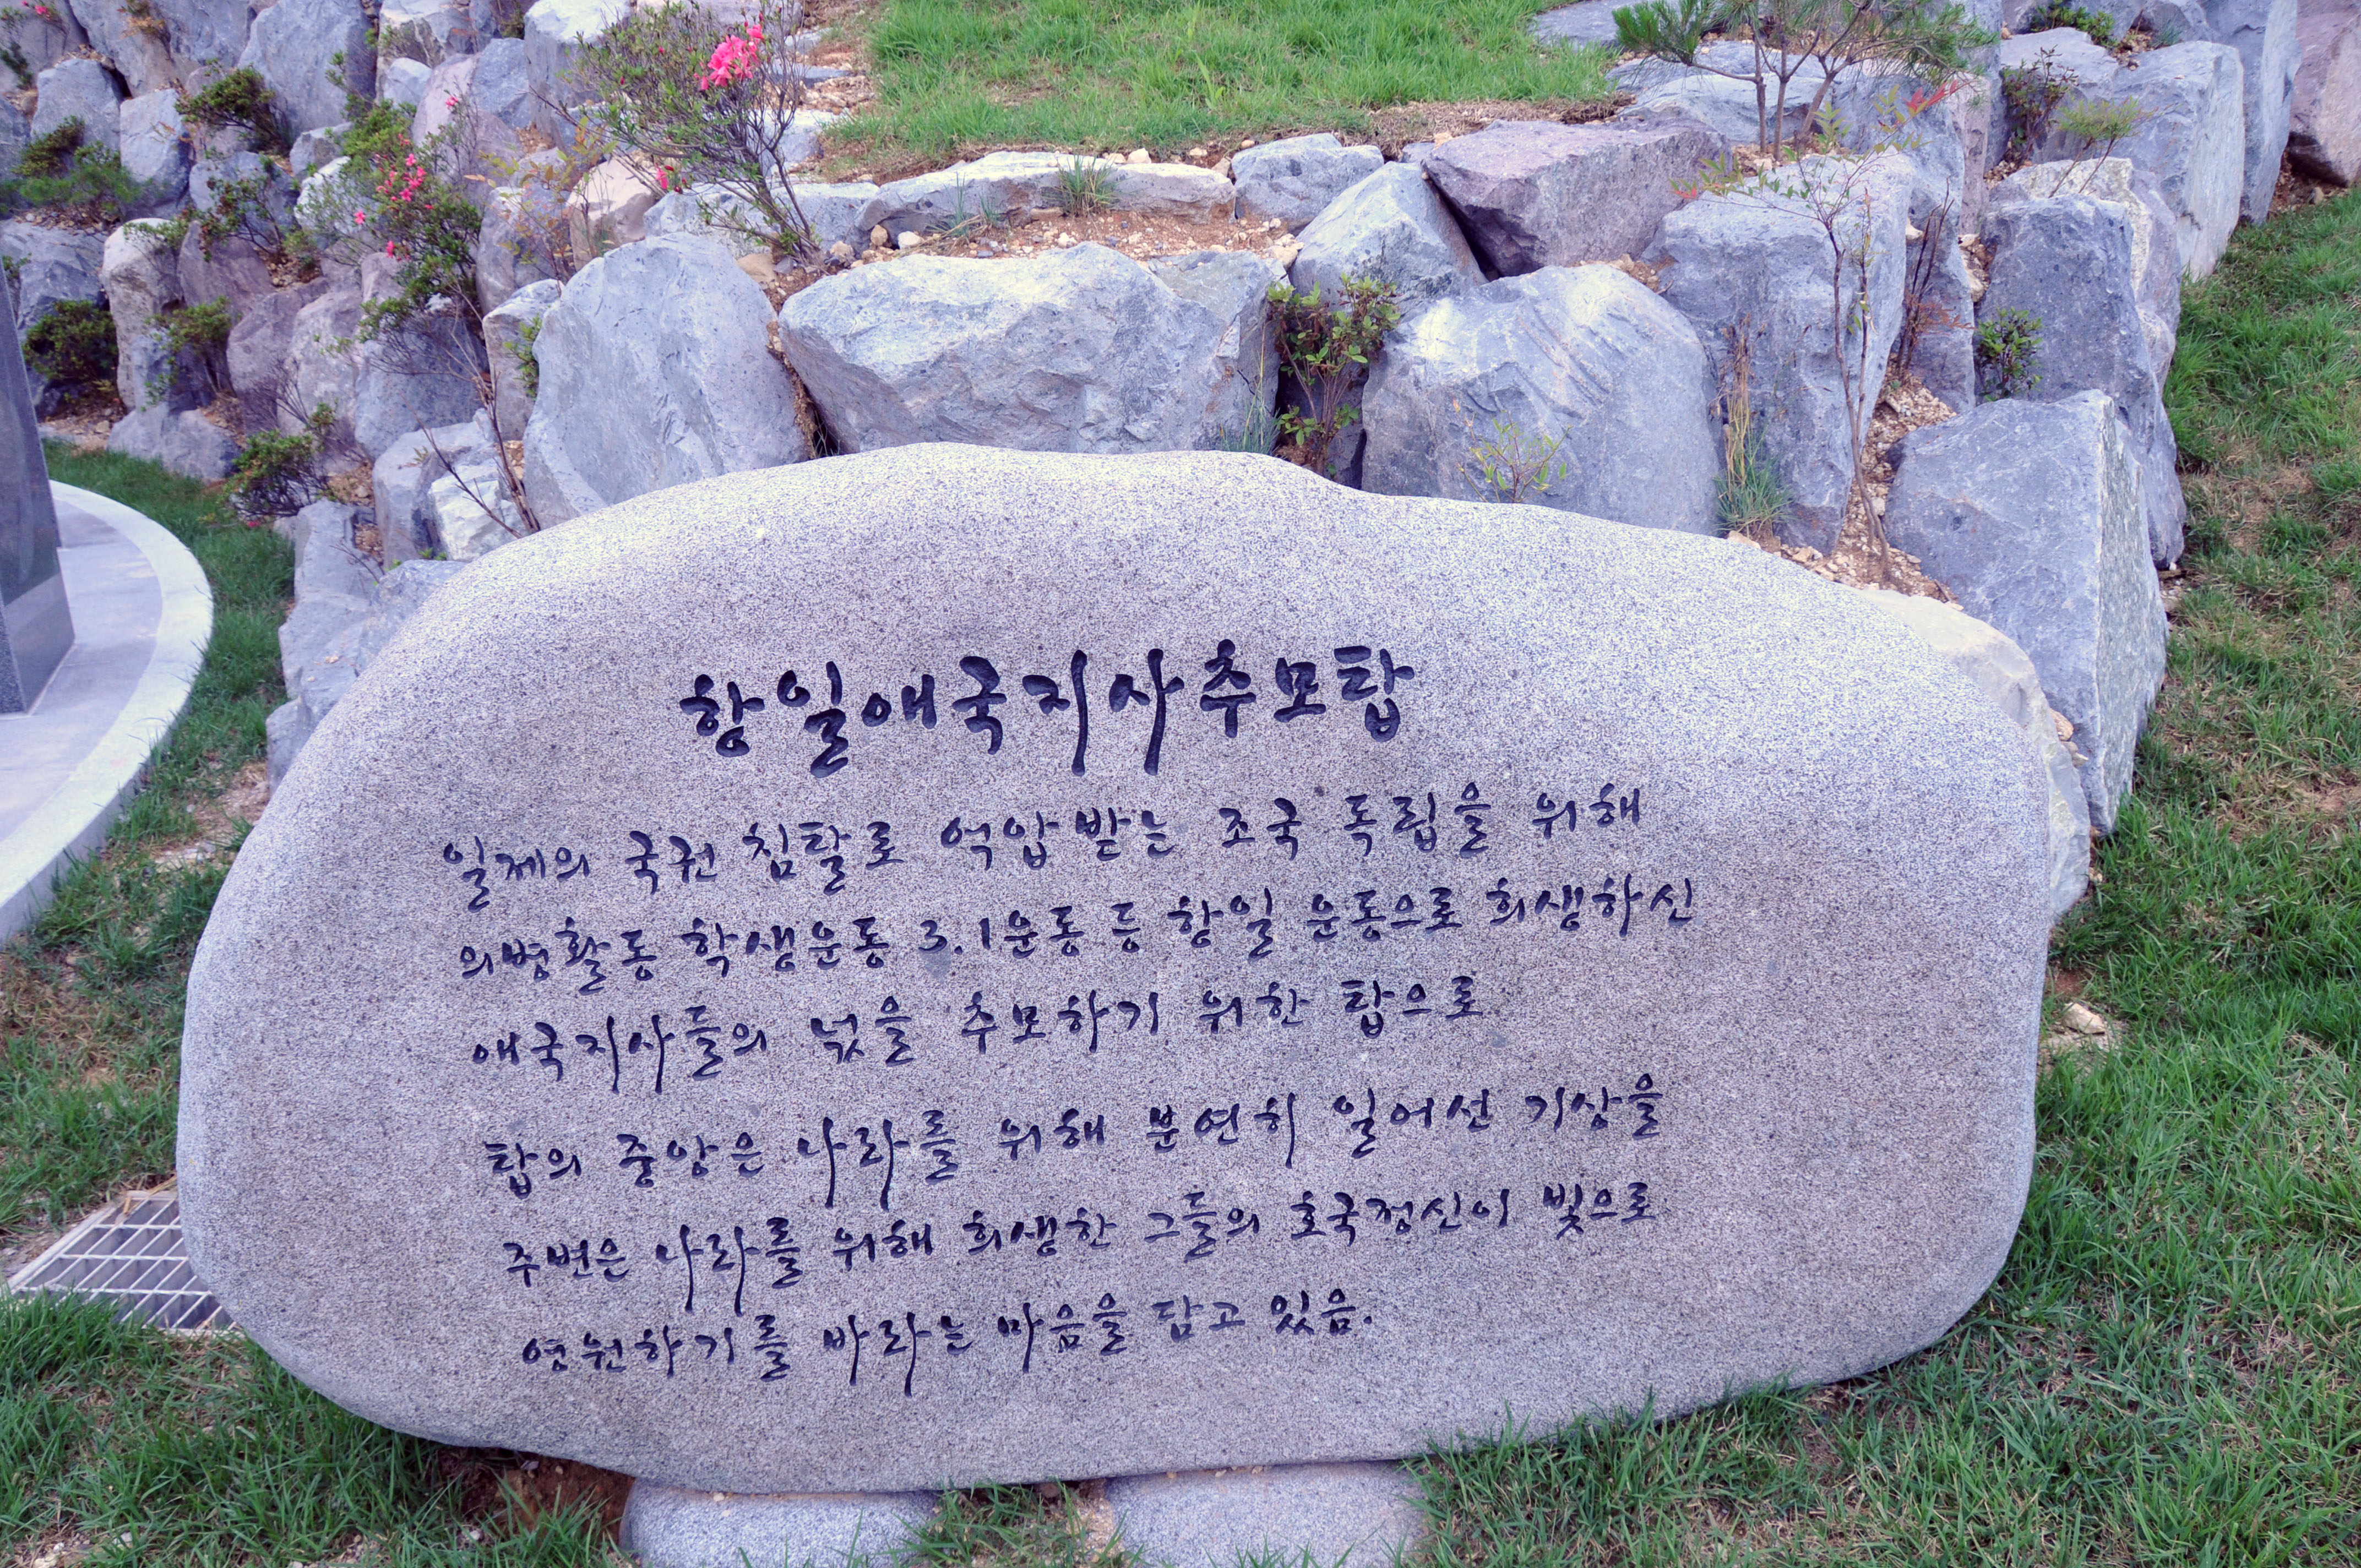 항일애국지사추모탑
일제의 국권 침탈로 억압받는 조국 독립을 위해
의병활동 학생운동 3.1운동 등 항일 운동으로 희생하신
애국지사들의 넋을 추모하기 위한 탑으로
탑의 중앙은 나라를 위해 분연히 일어선 기상을
주변은 나라를 위해 희생한 그들의 호국정신이 빛으로
영원하기를 바라는 마음을 담고 있음.